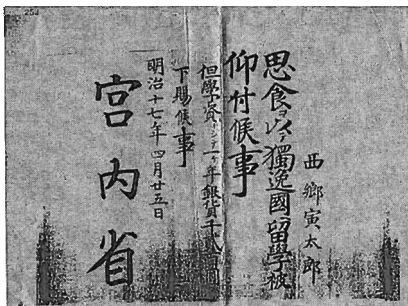 西郷寅太郎
思食ヨリ以テ獨逸國留學被
仰付候事
但學資トシテ一ヶ年銀貨千
下賜候事
明治十七年四月廿五日
宮内省